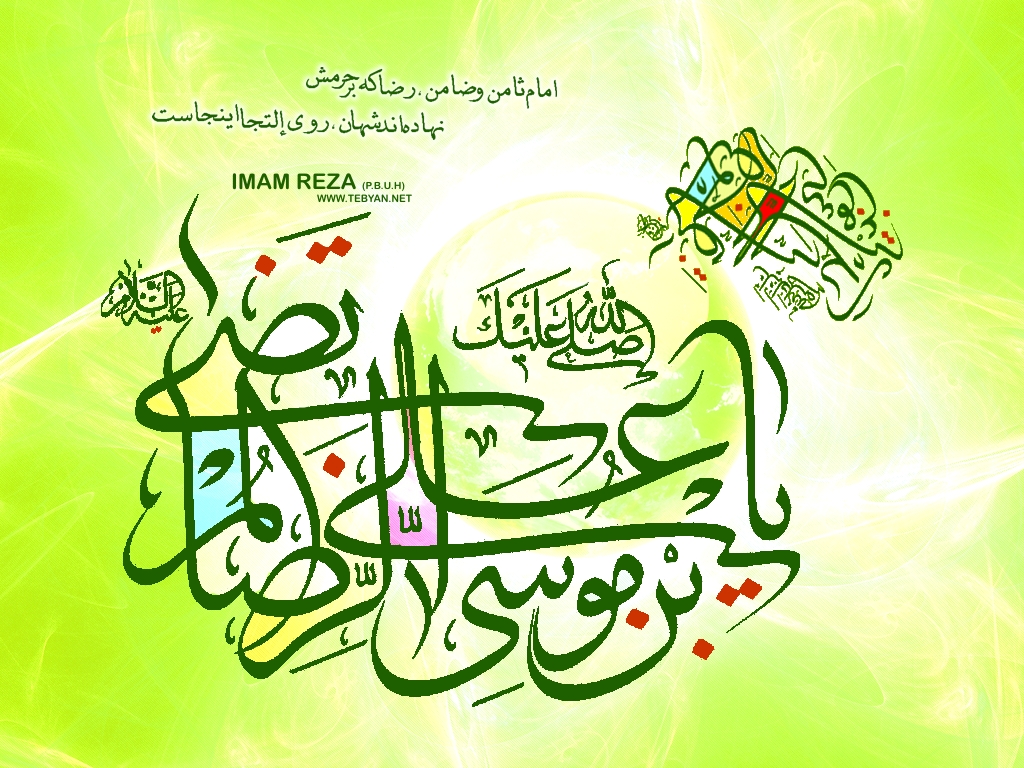 امام ثامن و ضامن، رضا که بر حرمش
نهاده‌اند شهان، روی إلتجا اینجاست
IMAM REZA (P.B.U.H)
WWW.TEBYAN.NET
علیه السلام
صلی الله علیک
یا علی بن موسی الرضا المرتضی